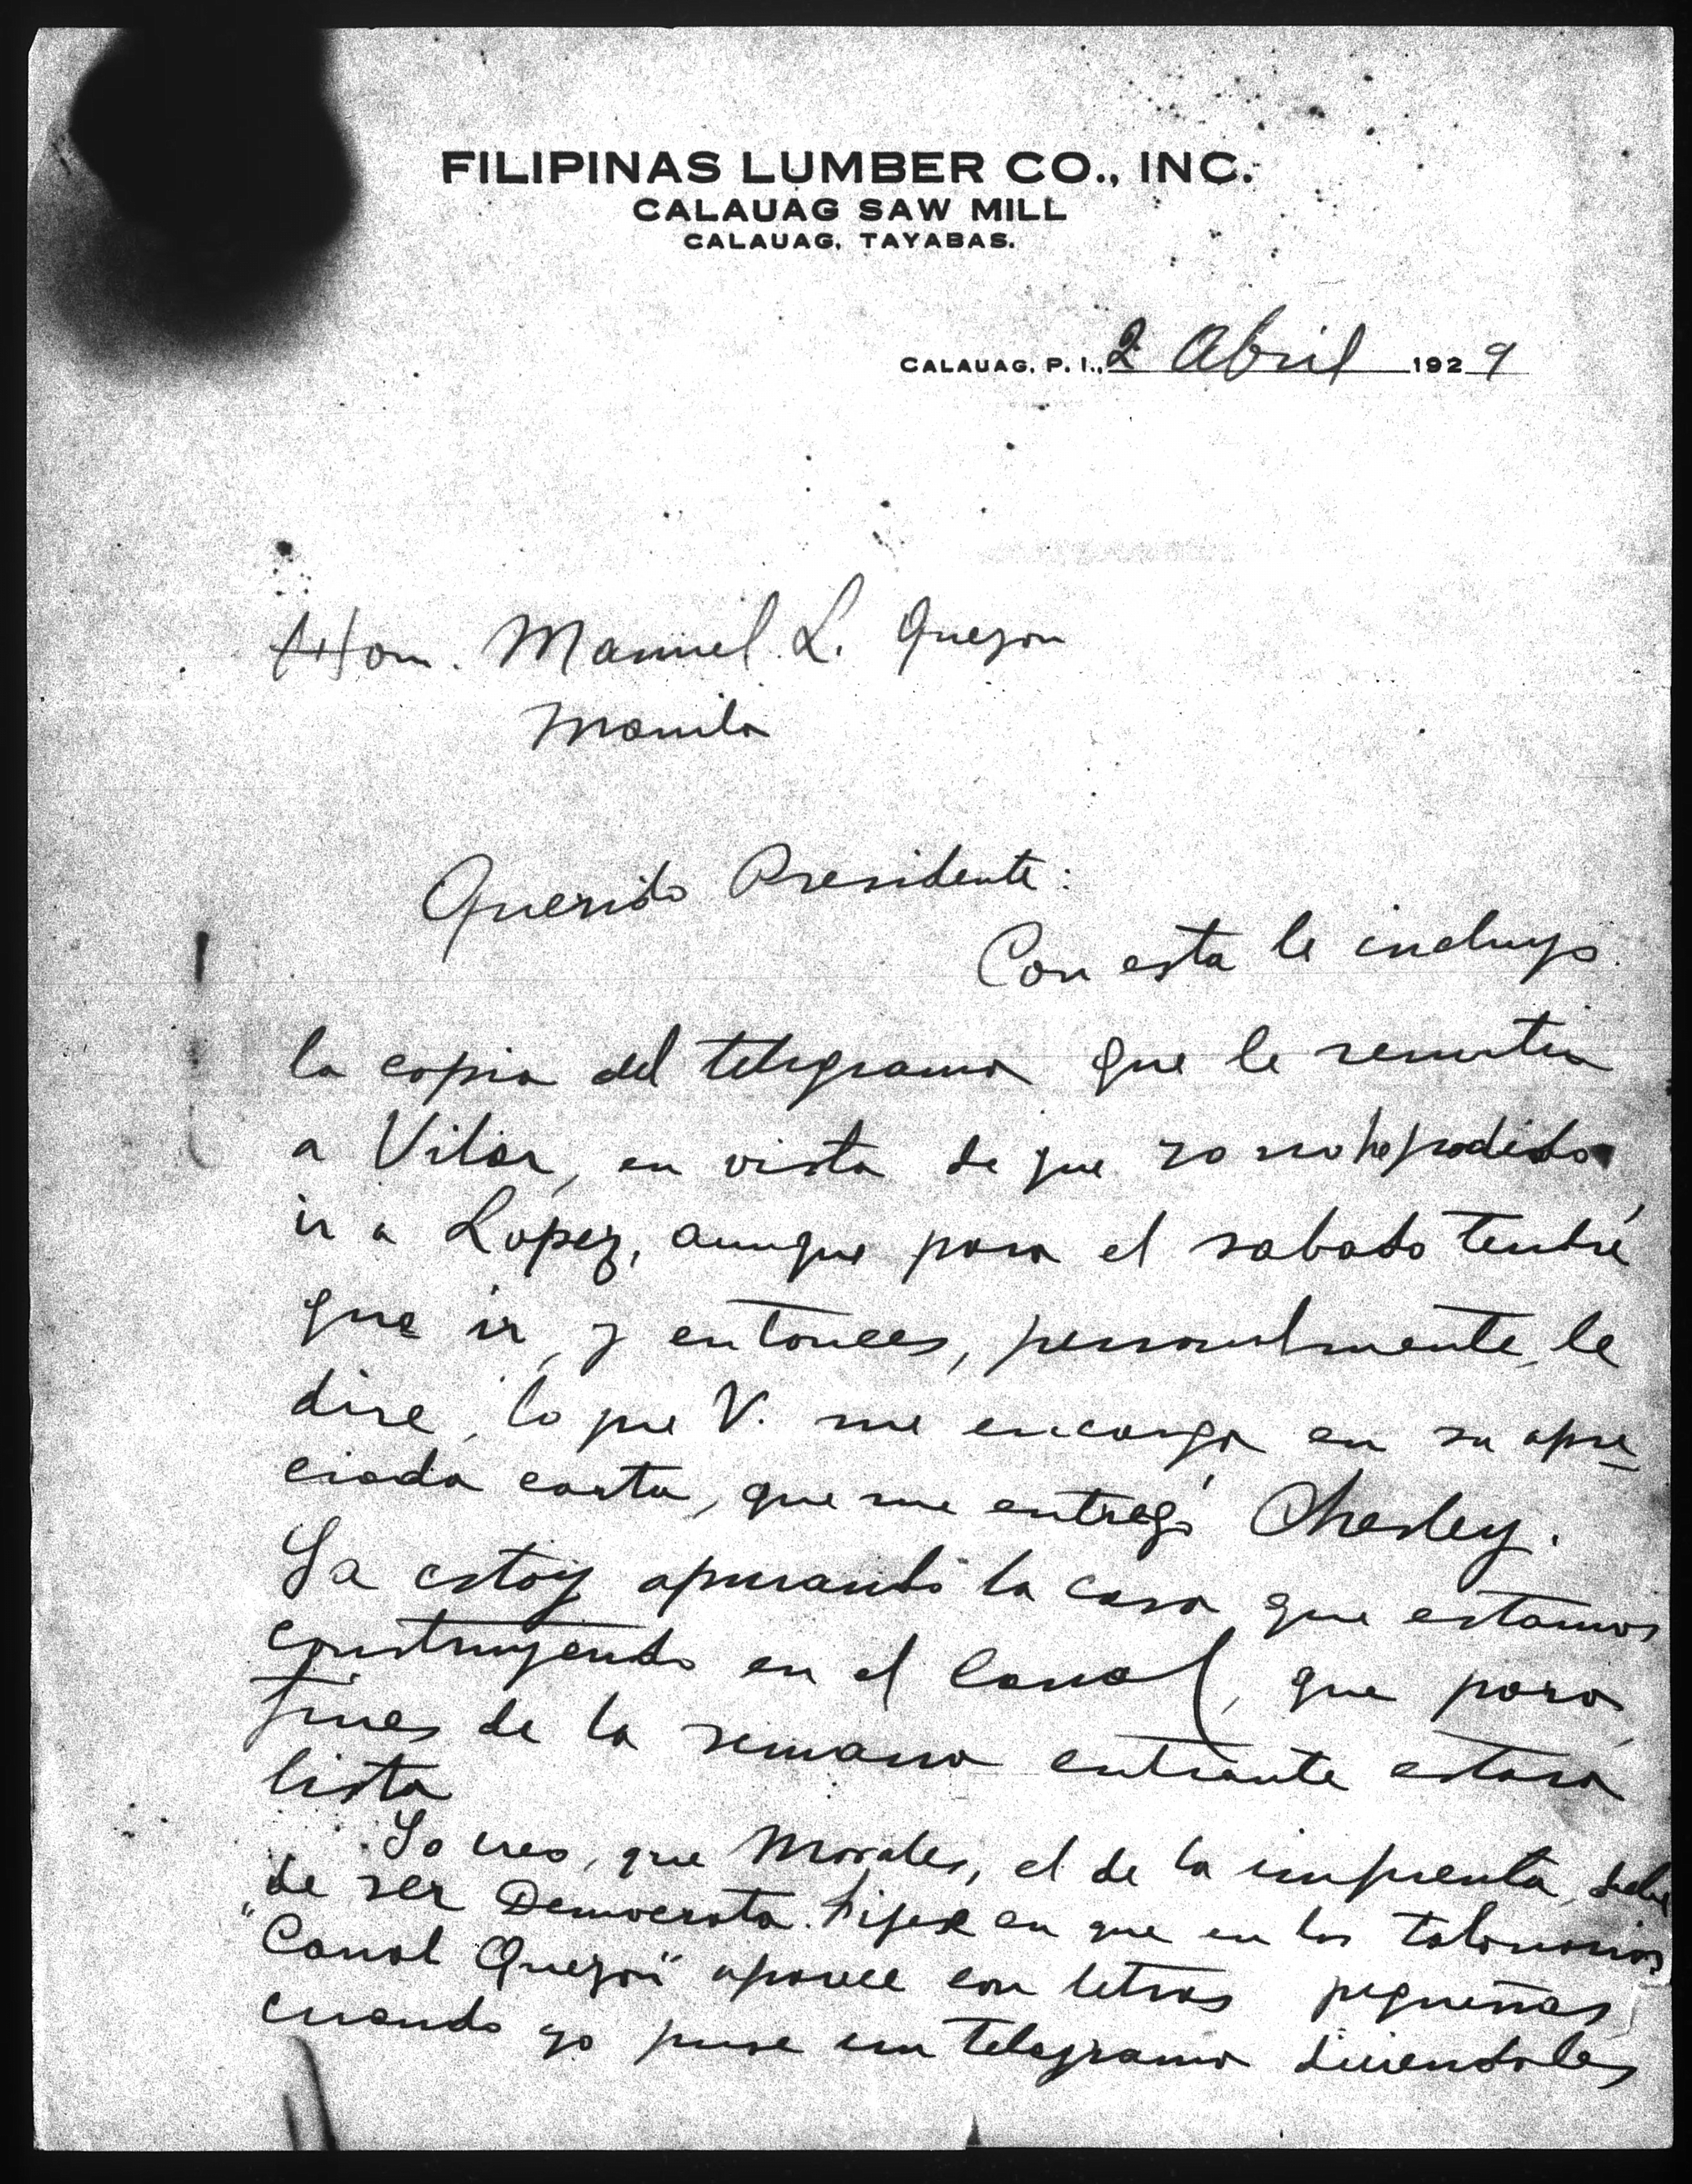 FILIPINAS LUMBER CO., INC.
CALAUAG SAW MILL
CALAUAG, TAYABAS.
CALAUAG, P. I., 2 Abril 1929
Hon. Manuel L. Quezon
Manila
Querido Presidente:
Con esta le incluyo
la copia del telegrama que le
a Vilar, en vista de que yo no he podido
ir a Lopez, aunque para el sabado tendré
que ir, y entonces, personalmente, le
dire, lo que V. me encarga en su apre
ciada carta, que me entregó
Ya estoy apurando la casa que estamos
construyendo en el Canal, que para
fines de la semana entrante estará
lista
Yo creo, que Morales, el de la imprenta, debe
de ser Democrata. Fijese en que en los talonarios
"Canal Quezon" aparece con letras pequeñas,
cuando yo puse un telegrama diciendoles